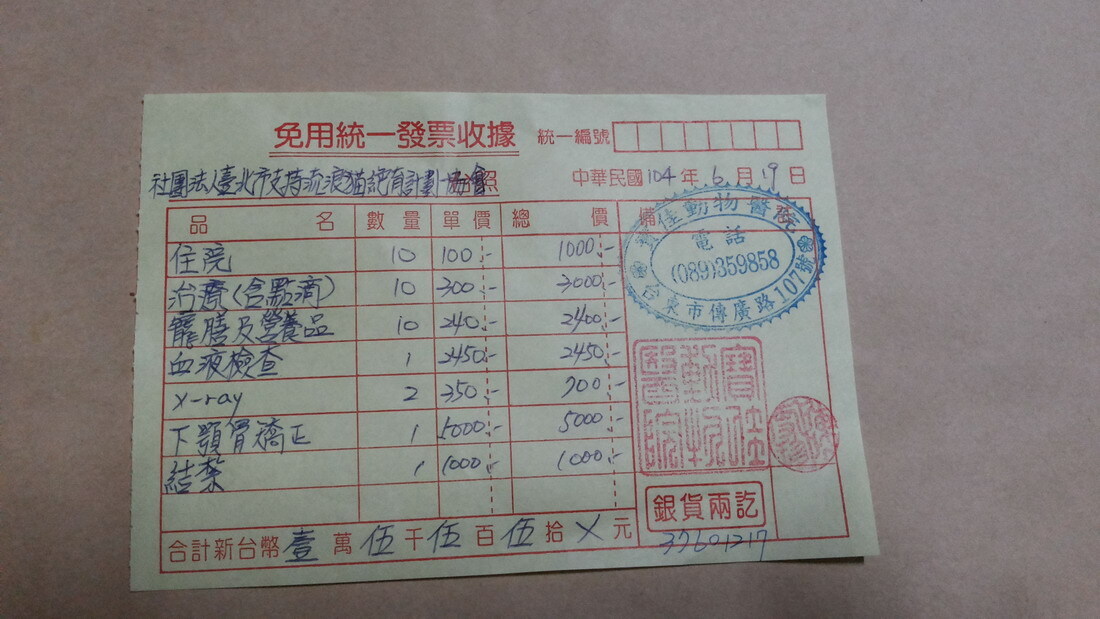 免用統一發票收據 統一編號
社團法人臺北市支持流浪貓絕育計劃協會 照 中華民國104年6月19日
品名 數量 單價 總價 備
住院 10 100.- 1000.-
治療(含點滴) 10 300.- 3000.-
膳及營養品 10 240.- 2400.-
血液檢查 1 2450.- 2450.-
x-ray 2 350.- 700.-
下顎骨矯正 1 5000.- 5000.-
結紮 1 1000.- 1000.-
合計新台幣壹萬伍千伍百伍拾X元
寶佳動物醫院
電話
(089)359858
台東市傳廣路107號
寶佳動物醫院
銀貨兩訖
37601217